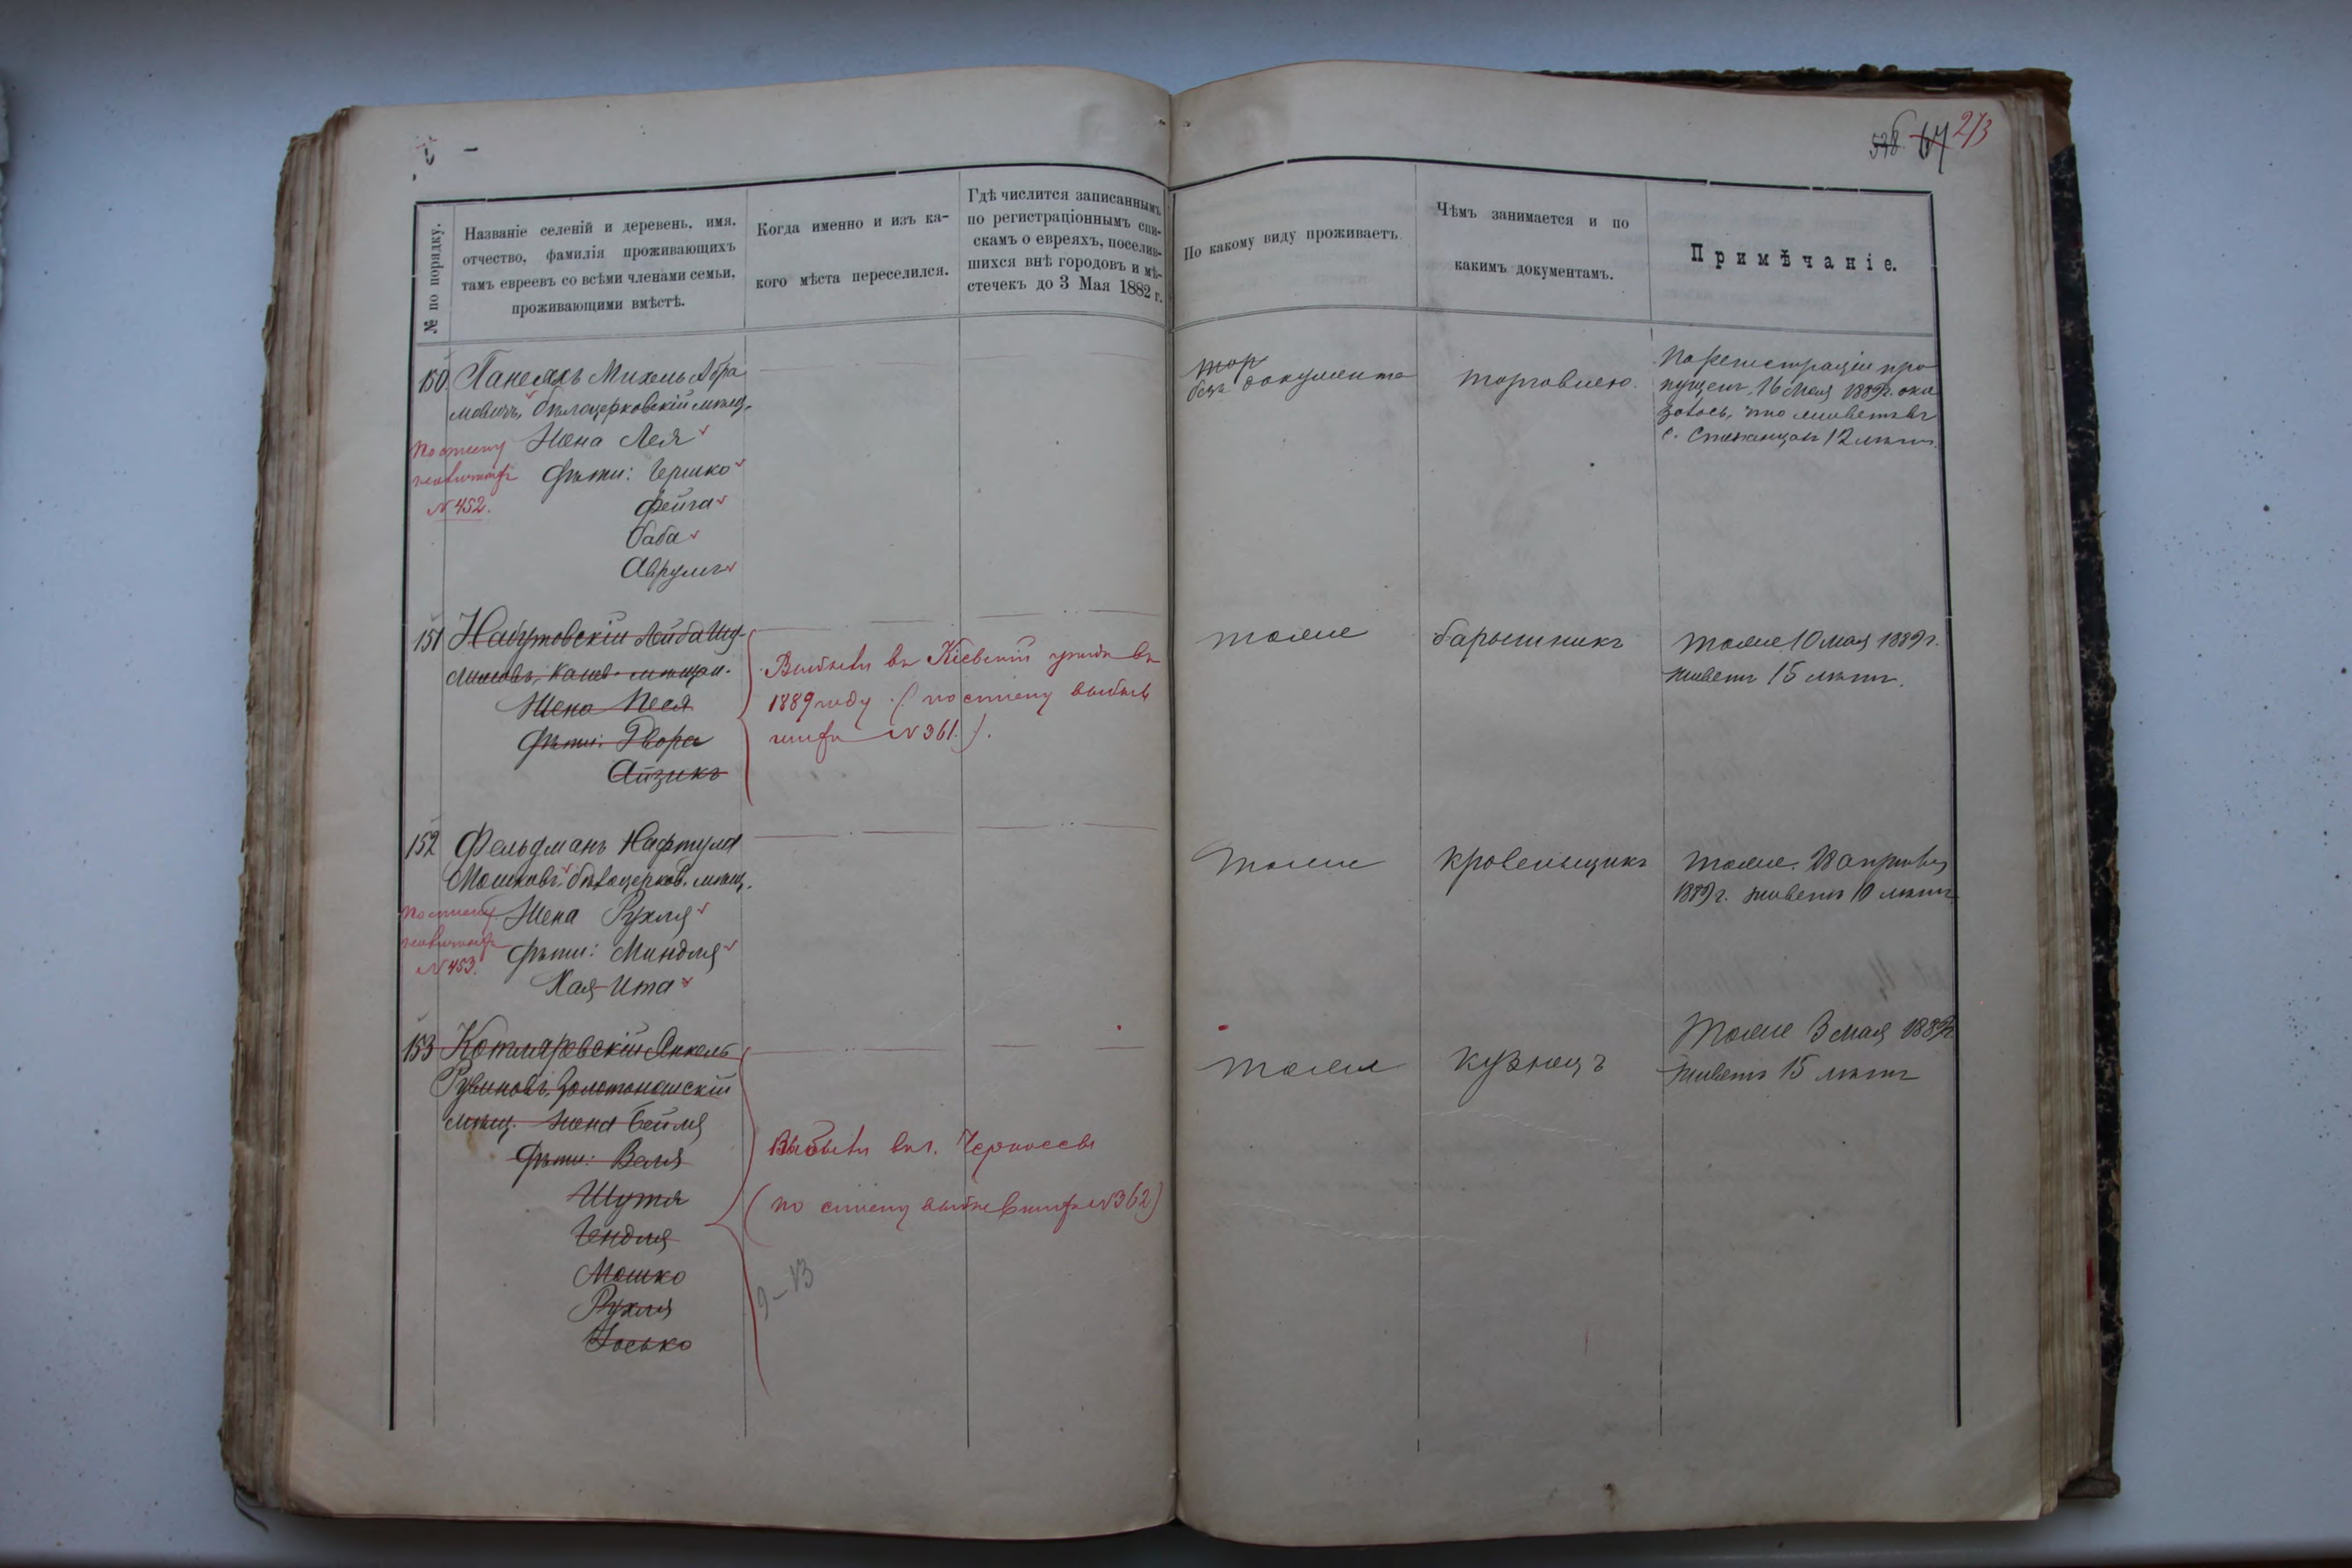 538. 67 273
№ по порядку.
Названіе селеній и деревень, имя,
отчество, фамилія проживающихъ
тамъ евреевъ со всѣми членами семьи,
проживающими вмѣстѣ.
Когда именно и изъ ка-
кого мѣста переселился.
Гдѣ числится записаннымъ
по регистраціоннымъ спи-
скамъ о евреяхъ, поселив-
шихся внѣ городовъ и мѣ-
стечекъ до 3 Мая 1882 г.
По какому виду проживаетъ.
Чѣмъ занимается и по
какимъ документамъ.
Примѣчаніе.
150 Михель Абра
мовичъ, бѣлоцерковскій мѣщ.
Жена Лея
Дѣти: Гершко
Фейга
Баба
Аврумъ
По списку
№ 452.
безъ документа
торговлею.
По регистраціи про
пущенъ, 16 Мая 1889г. ока
залось, что живетъ въ
с. Степанцахъ 12 лѣтъ.
151 Набутовскій Лейба Шу-
лимовъ, Канев. мѣщан.
Жена Песя
Дѣти: Двора
Айзикъ
Выбыли въ Кіевскій уѣздъ въ
1889 году. (по списку выбыв
шихъ № 361.).
тоже
барышникъ
тоже 10 мая 1889 г.
живетъ 15 лѣтъ.
152 Фельдманъ Нафтула
Мошковъ, бѣлоцерков. мѣщ.
Жена Рухля
Дѣти: Миндля
Хая-Ита
По списку
№ 453.
тоже
кровельщикъ
тоже. 28 апрѣля
1889 г. живетъ 10 лѣтъ
153 Котляревскій Янкель
Рувиновъ, Золотоношскій
мѣщ. жена Бейля
Дѣти: Веля
Шутя
Гендля
Мошко
Рухля
Іосько
Выбыли въ г. Черкассы
(по списку выбывшихъ №362)
9-13
тоже
кузнецъ
тоже 3 мая 1889г.
живетъ 15 лѣтъ